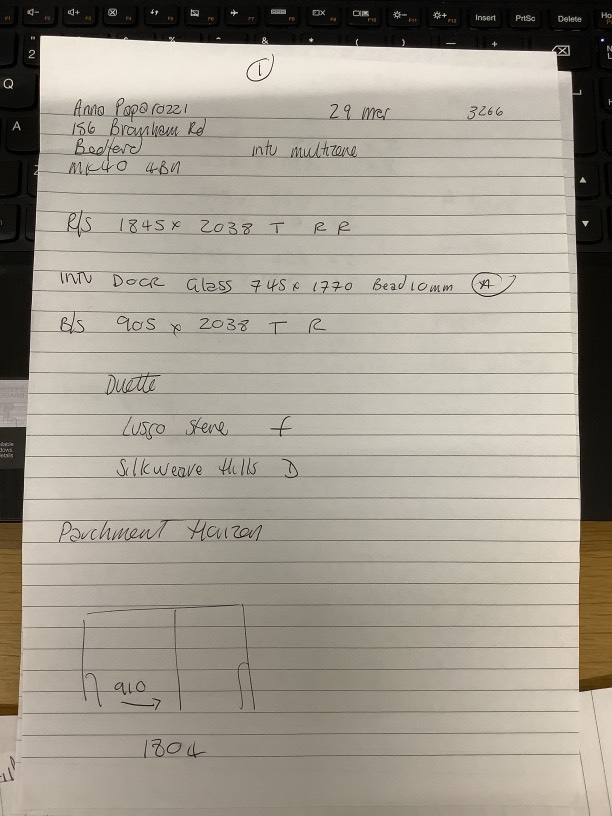 ①
Anna Paparozzi 29 mar 3266
156 Bromham Rd
Bedford intu multizone
MK40 4BN
R/S 1845 x 2038 T R R
INTU DOOR Glass 745 x 1770 Bead 10mm
B/S 905 x 2038 T R
Duette
Lusso Stene f
Silkweave Hills D
Parchment
910
1804
Insert PrtSc Delete
Q
A
2